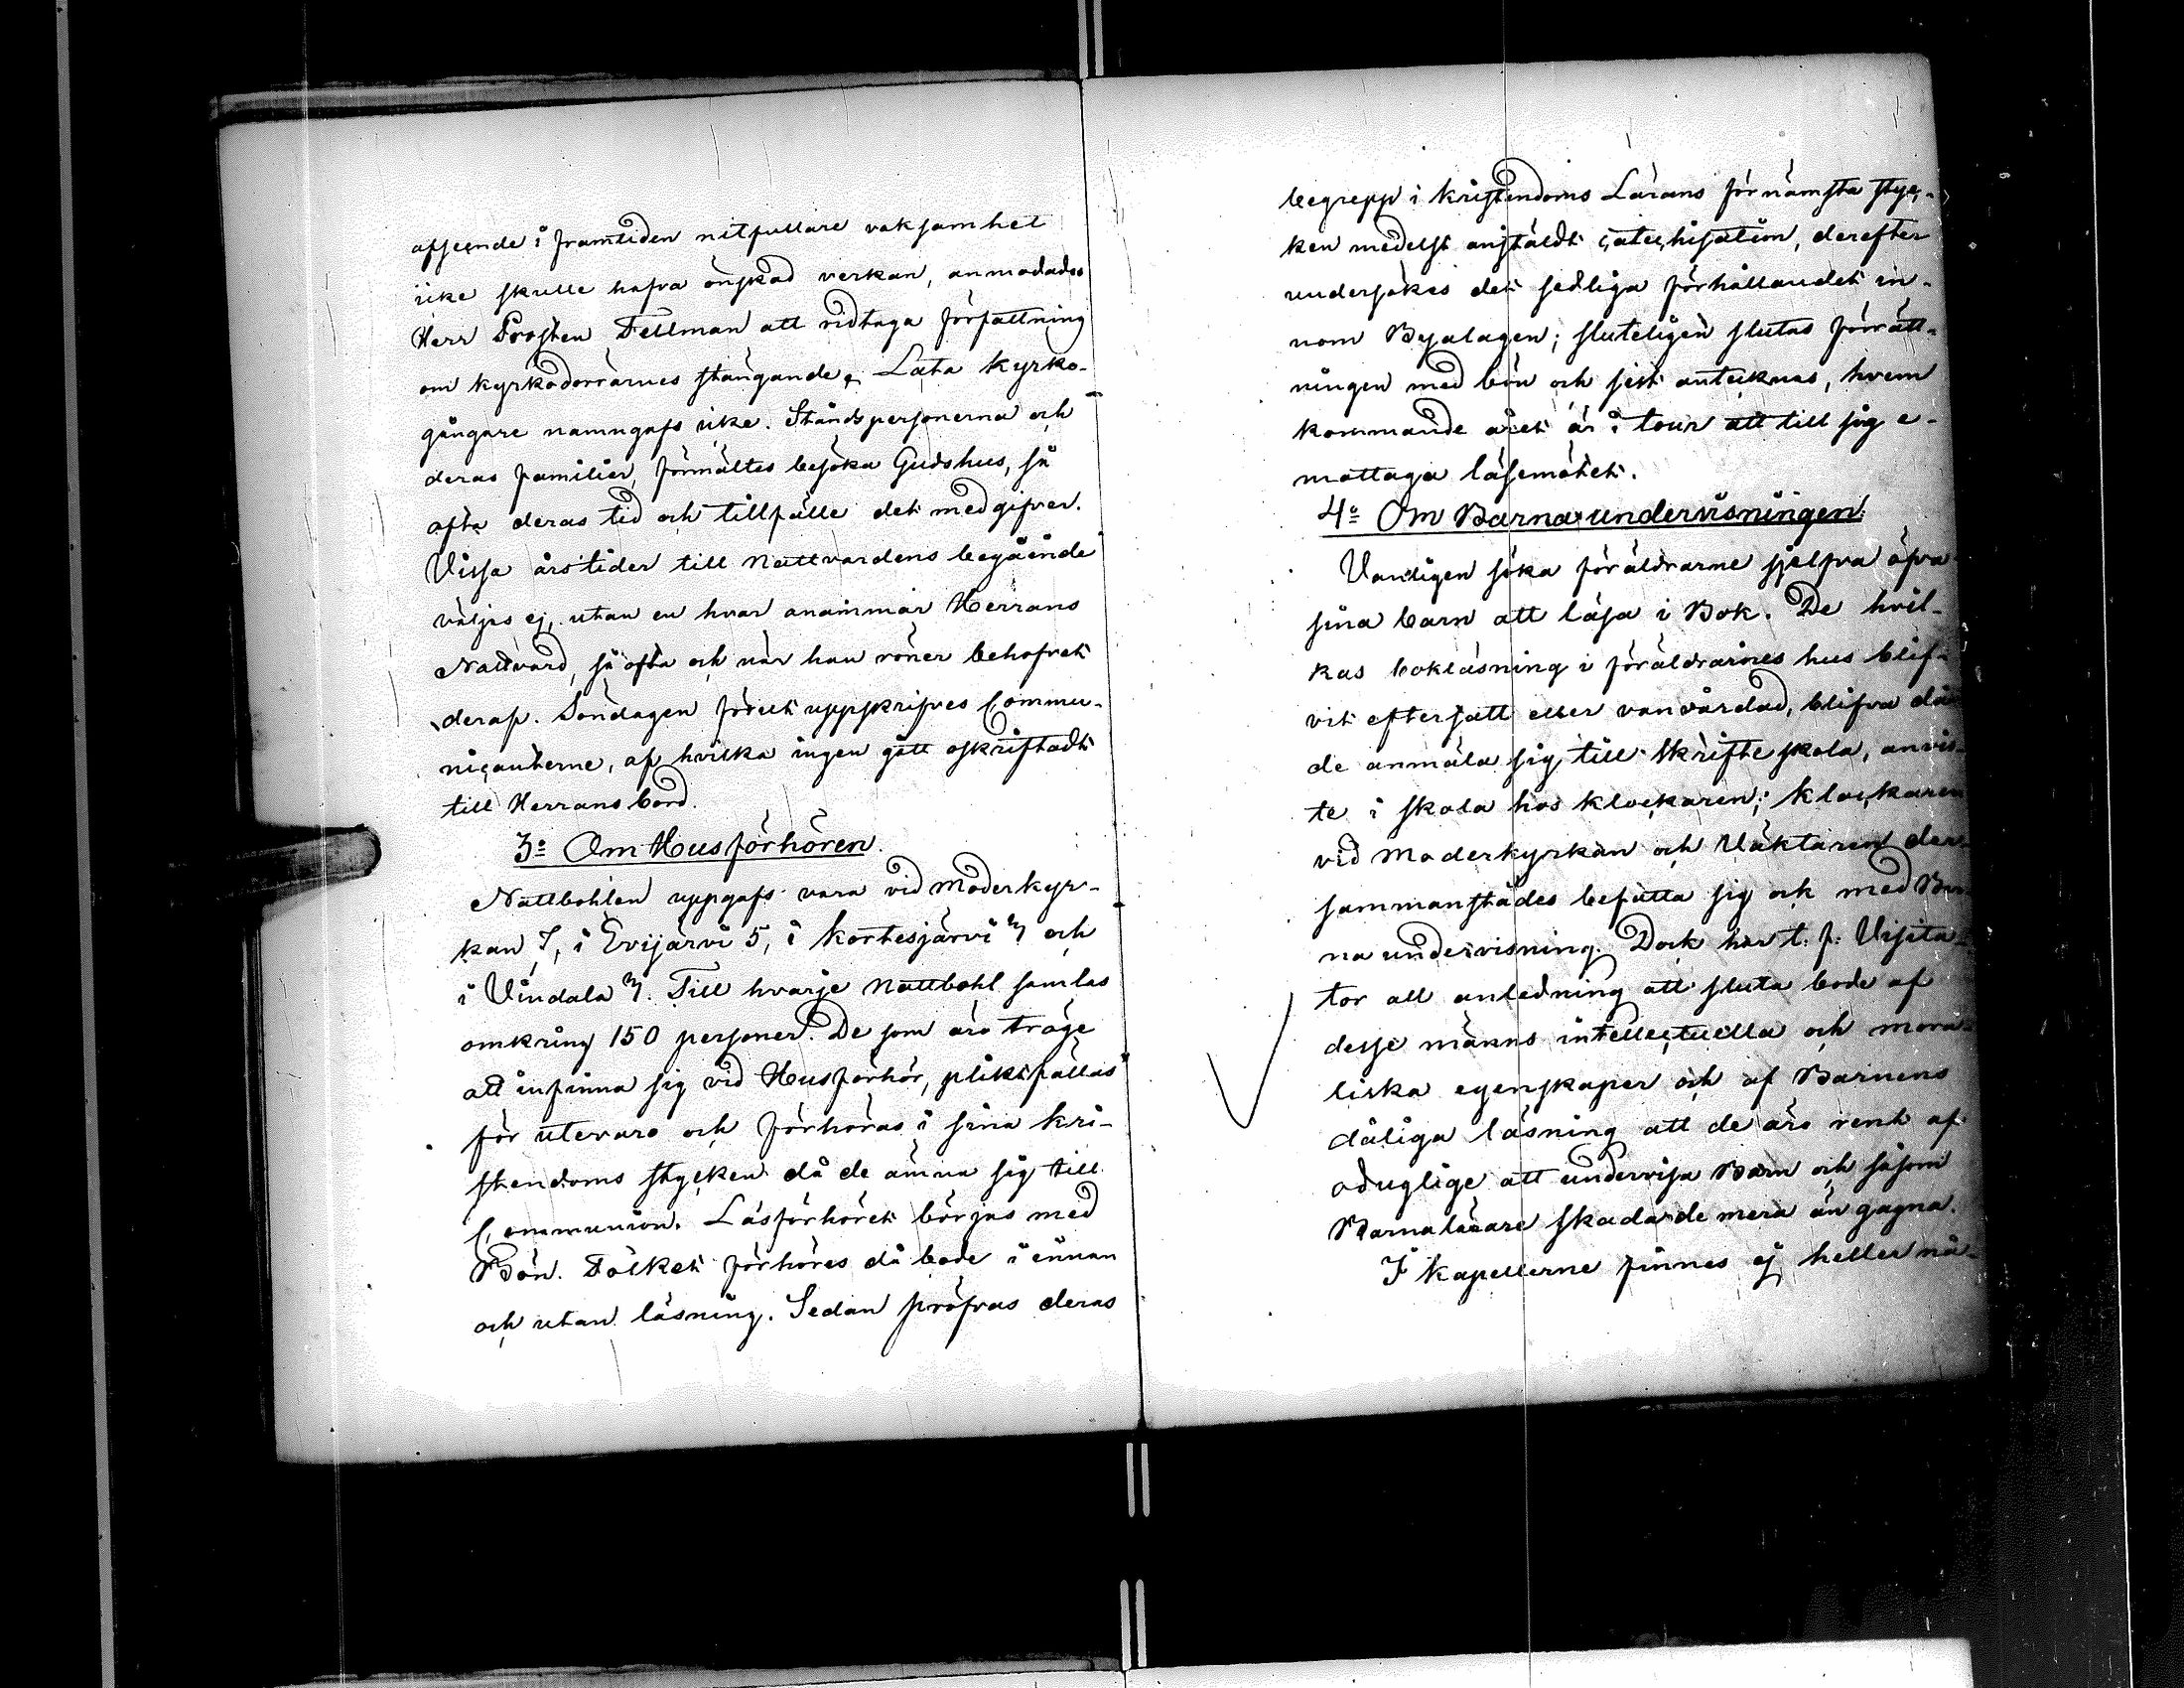 afseende i framtiden nitfullare vaksamhet
icke skulle hafva önskad verkan, anmodades
Herr Prosten Fellman att vidtaga författning
om kyrkodörrarnes stängande. Lata kyrko-
gångare namngafs icke. Ståndspersonerna och
deras familier, förmältes besöka Gudshus, så
ofta deras tid och tillfälle det medgifver.
Vissa årstider till nattvardens begående
väljes ej, utan en hvar anammar Herrans
Nattvard, så ofta och när han röner behofvet
deraf. Söndagen förut uppskrifves Commu-
nicanterne, af hvilka ingen gått oskriftadt
till Herrans bord.
3:o Om Husförhören.
Nattbohlen uppgafs vara vid moderkyr-
kan 7, i Evijärvi 5, i Kortesjärvi 3 och
i Vindala 3. Till hvarje Nattbohl samlas
omkring 150 personer. De som äro tröge
att infinna sig vid Husförhör, pliktfällas
för utevaro och förhöras i sina kri-
stendoms stycken då de ämna sig till
Communion. Läsförhöret börjas med
Bön. Folket förhöres då både i innan
och utan läsning. Sedan pröfvas deras
begrepp i Kristendoms Lärans förnämsta styc-
ken medelst anstäldt catechisation, derefter
undersökes det sedliga förhållandet in-
nom Byalagen; sluteligen slutas förrätt-
ningen med bön och sist antecknas, hvem
kommande året är i tour att till sig e-
mottaga läsemötet.
4:o Om Barna undervisningen.
Vanligen söka föräldrarne sjelfva öfva
sina barn att läsa i Bok. De hvil-
kas bokläsning i föräldrarnes hus blif-
vit eftersatt eller vanvårdad, blifva då
de anmäla sig till Skrifteskola, anvis-
te i skola hos klockaren; klockaren
vid Moderkyrkan och Väktaren der-
sammanstädes befatta sig ock med Bar-
na undervisning. Dock har t. f. Visita-
tor all anledning att sluta både af
desse männs intellectuella och mora-
liska egenskaper och af Barnens
dåliga läsning att de äro rent af
oduglige att undervisa Barn och såsom
Barnalärare skadande mera än gagna.
I Kapellerne finnes ej heller nå-